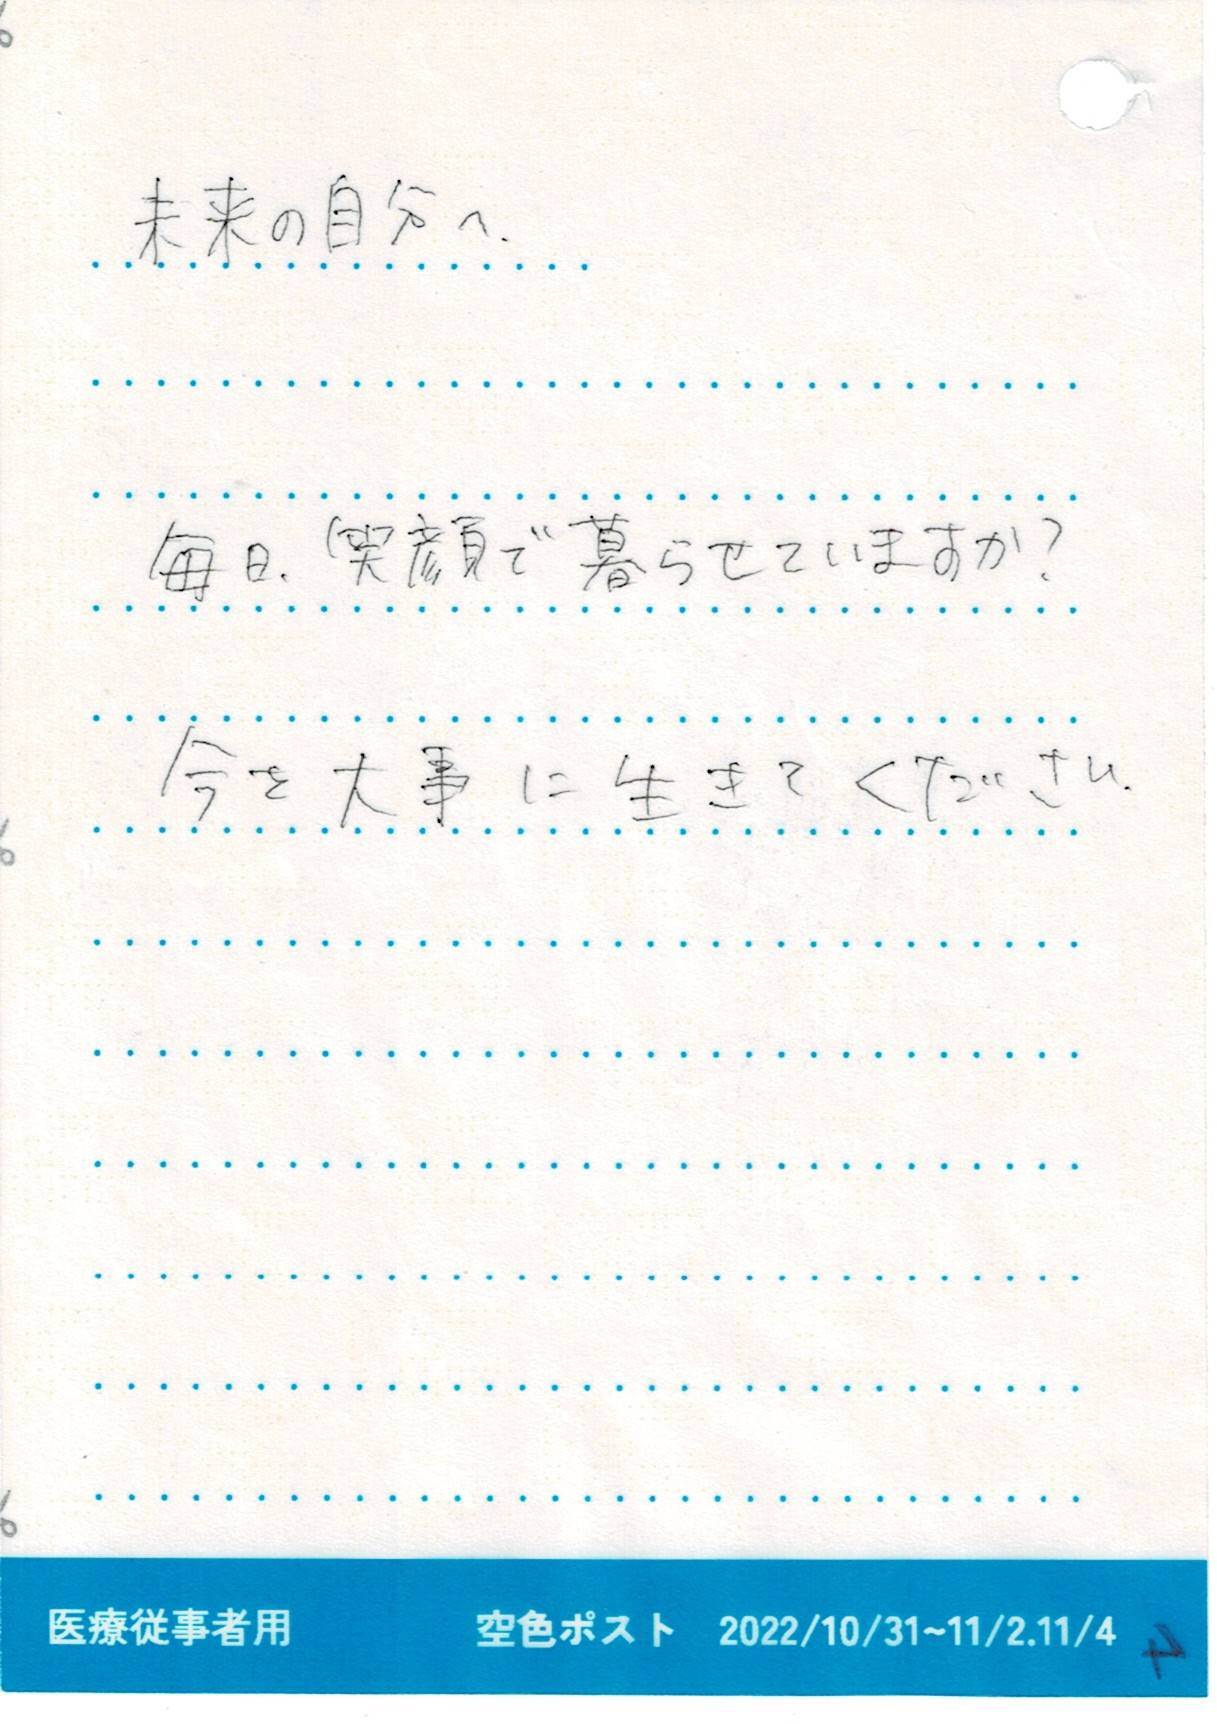 未来の自分へ.
毎日、笑顔で暮らせていますか?
今を大事に生きてください.
医療従事者用 空色ポスト 2022/10/31~11/2.11/4 4